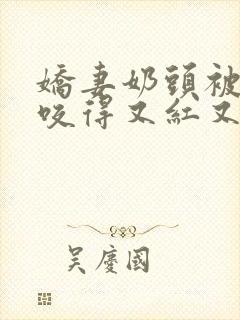 嬌妻奶頭被
咬得又紅又
吳慶國